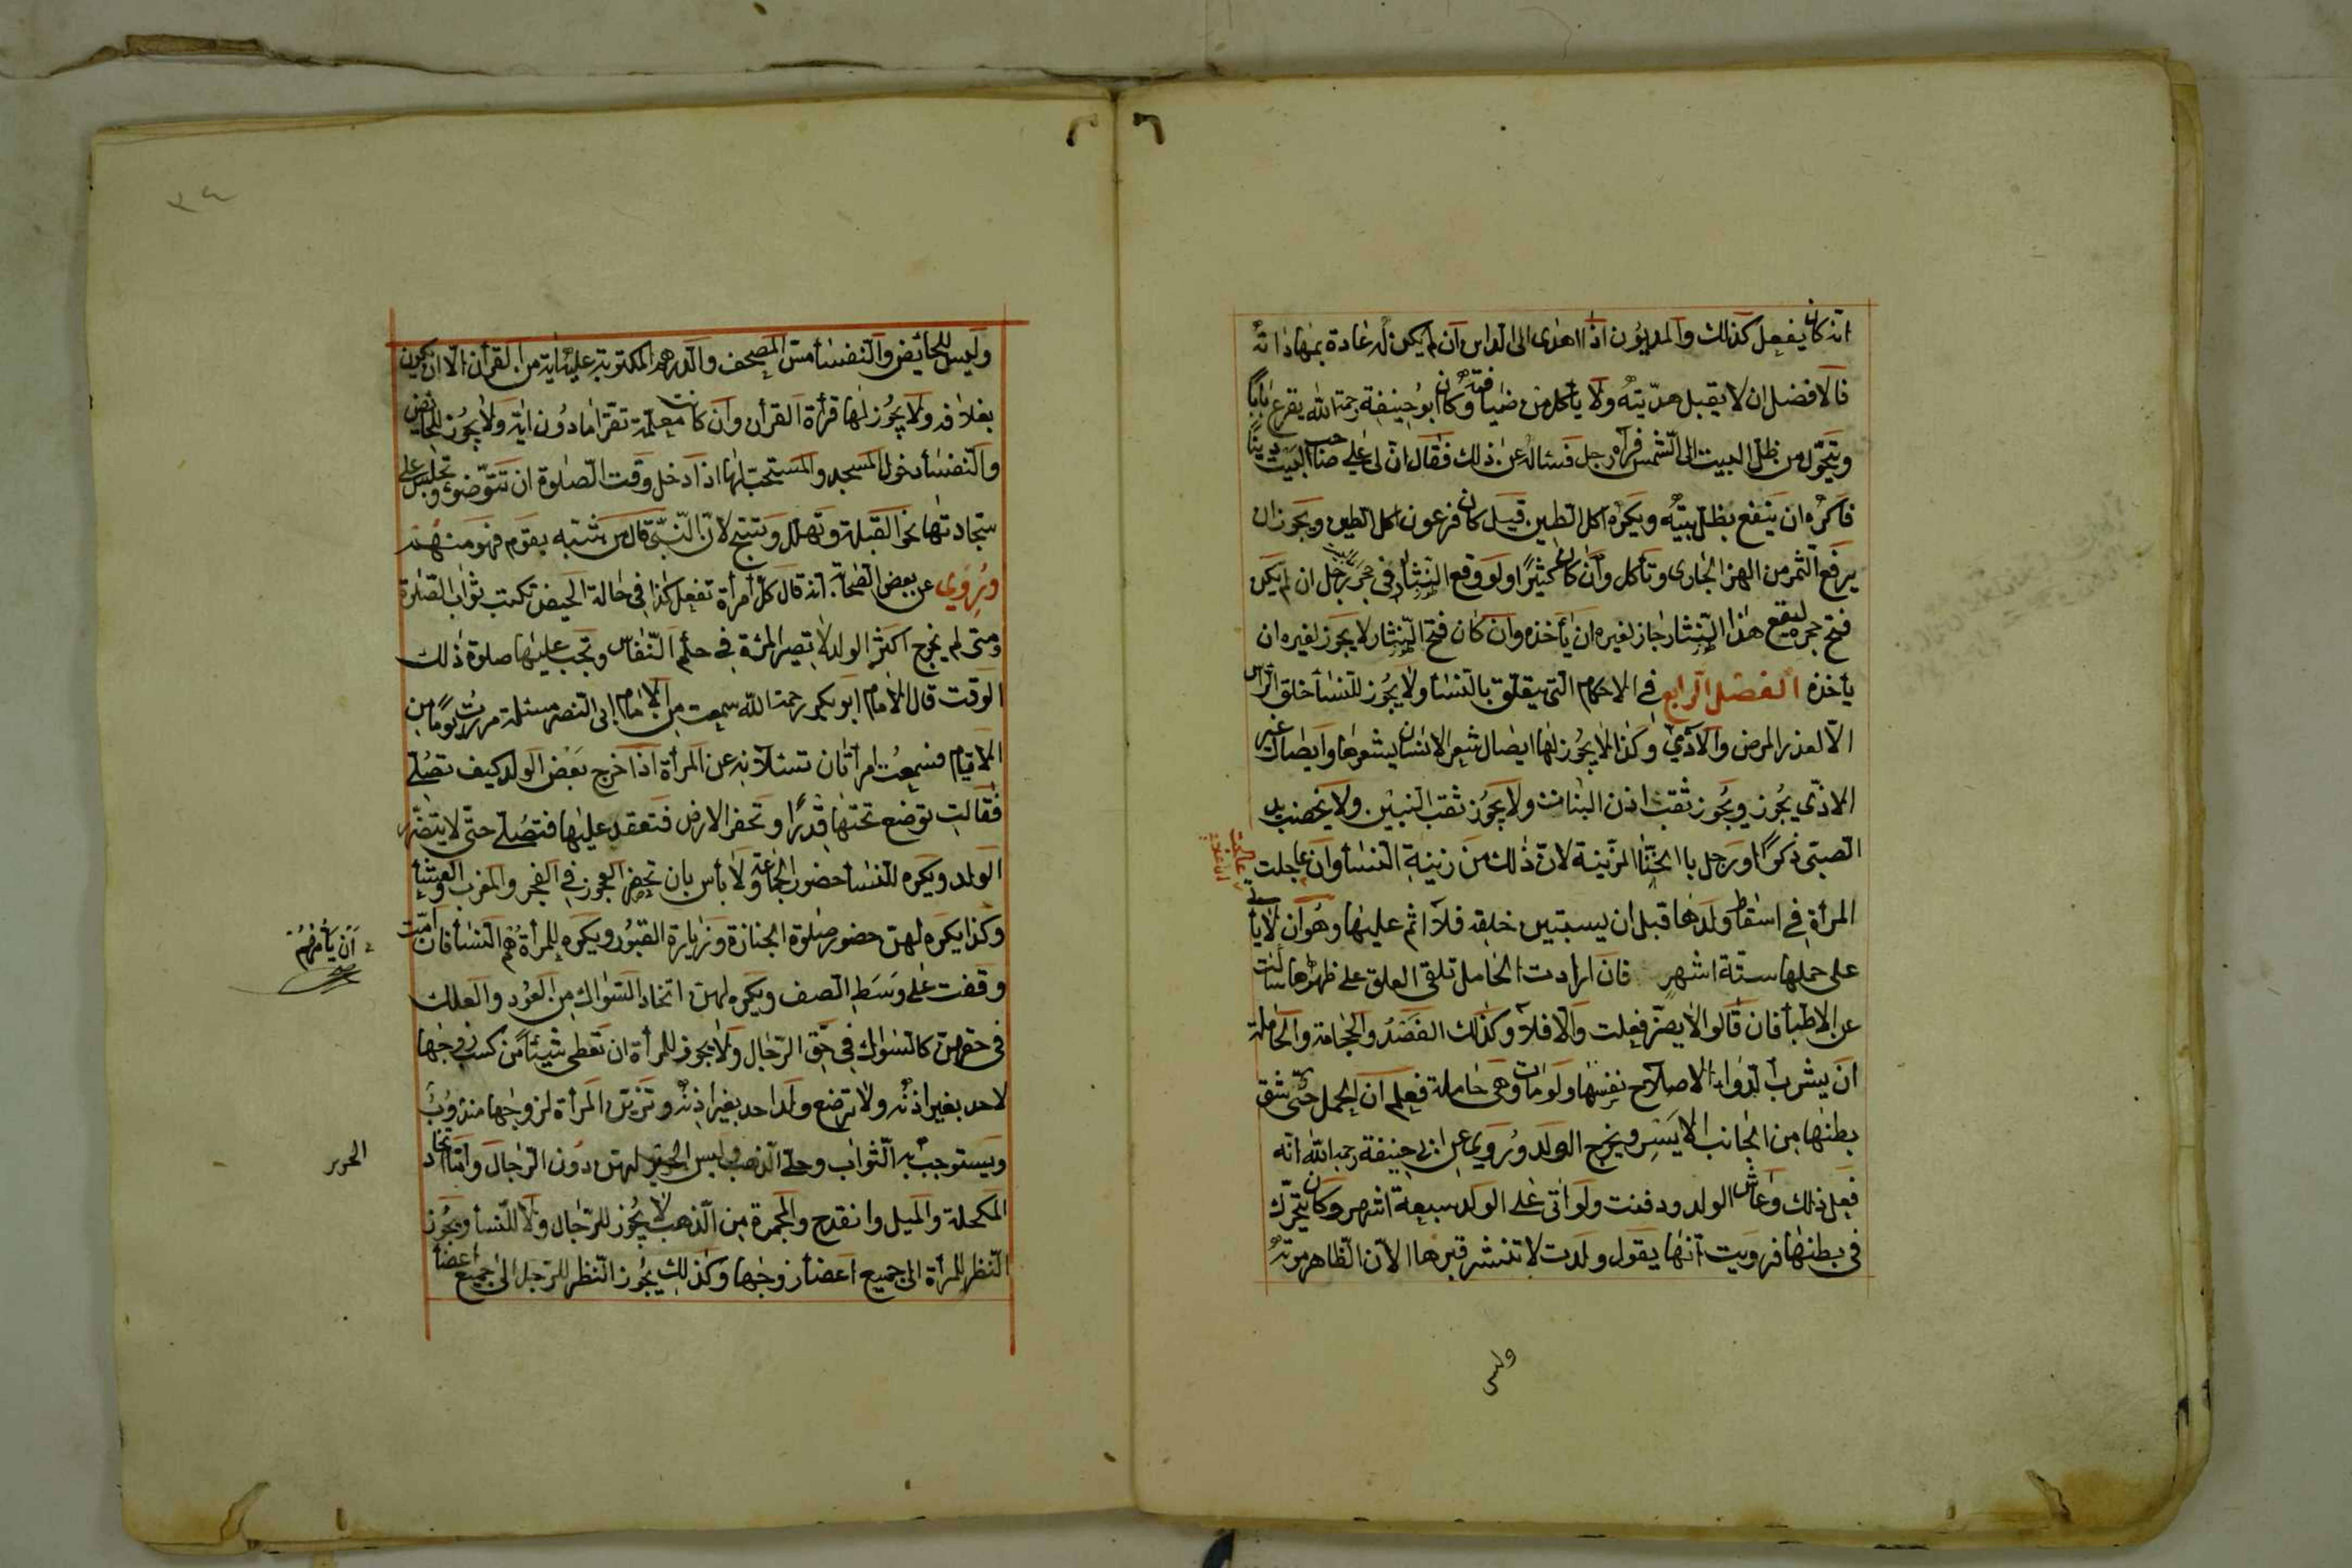 انه كان يفعل كذلك والمديون اذا اهدى الى الداين ان لم يكن له عادة بمهاداته
فالافضل ان لا يقبل هديته ولا يأكل من ضيافته وكان ابو حنيفة رحمة الله يقرع بابا
ويتحول من ظل البيت الى الشمس فرآه رجل فساله عن ذلك فقال ان لى على صاحب البيت دينا
فاكره ان ينفع بظل بيته ويكره اكل الطين قيل كان فرعون اكل الطين ويجوز ان
يرفع الثمر من النهر الجارى وتأكل وان كان كثيرا ولو وقع النثار فى حجر رجل ان لم يكن
فتح حجره ليقع هذا النثار جاز لغيره ان يأخذه وان كان فتح النثار لا يجوز لغيره ان
يأخذه الفصل الرابع فى الاحكام التى يتعلق بالنسأ ولا يجوز للنسأ خلق الراس
الا لعذر المرض والاذي وكذا لا يجوز لها ايصال شعر الانسان بشعرها وايصال غير
الاذى يجوز ويجوز ثقب اذن البنات ولا يجوز ثقب البنين ولا يخضب يد
الصبى ذكرا او رجل بالحنا المزينة لان ذلك من زينة النسأ وان عاجلت
المرأة فى اسقاط ولدها قبل ان يستبين خلقه فلا اثم عليها وهو ان لا يأتى
على حملها ستة اشهر فان ارادت الحامل تلقى العلق على ظهرها سالت
عن الاطبأ فان قالوا لا يضر فعلت والا فلا وكذلك الفصد والحجامة والحاملة
ان يشرب الدواء لاصلاح نفسها ولو ماتت وهى حاملة فعلم ان الحمل حى شق
بطنها من الجانب الايسر ويخرج الولد وروى عن ابى حنيفة رحمه الله انه
فعل ذلك وعاش الولد ودفنت ولو اتى على الولد سبعة اشهر وكان يتحرك
فى بطنها فرويت انها يقول ولدت لا تنشر قبرها الا ان الظاهر موته
وليس
وليس للحائض والنفسأ مس المصحف والدرهم المكتوبة عليه اية من القرأن الا ان يكون
بغلافه ولا يجوز لها قرأة القرأن وان كانت معلمة تقرا مادون اية ولا يجوز للحائض
والنفسأ دخول المسجد والمستحب لها اذا دخل وقت الصلوة ان تتوضؤ وتجلس على
سجادتها نحو القبلة وتهلل وتسبح لان النبى قال من تشبه بقوم فهو منهم
وروي عن بعض الصحابة انه قال كل امرأة تفعل كذا فى حالة الحيض تكتب ثواب الصلوة
ومتى لم يخرج اكثر الولد لا تصير المرأة فى حكم النفاس وتجب عليها صلوة ذلك
الوقت قال الامام ابو بكر رحمة الله سمعت من الامام ابى النصر مسئلة مررت يوما من
الايام فسمعت امرأتان تسئلانه عن المرأة اذا خرج بعض الولد كيف تصلى
فقالت توضع تحتها قدرا وتحفر الارض فتعقد عليها فتصلى حتى لا يتضرر
الولد ويكره للنسأ حضور الجماعة ولا بأس بان تحضر العجوز فى الفجر والمغرب والعشأ
وكذا يكره لهن حضور صلوة الجنازة وزيارة القبور ويكره للمرأة تؤم النسأ فان امت
ان يأمرهم
وقفت على وسط الصف ويكره لهن اتخاذ السواك من العود والعلك
فى حقهن كالسواك فى حق الرجال ولا يجوز للمرأة ان تعطى شيئا من كسب زوجها
لاحد بغير اذنه ولا ترضع ولد احد بغير اذنه وتزين المرأة لزوجها مندوب
ويستوجب به الثواب وحلى الذهب ولبس الحرير لهن دون الرجال واما اتخاذ
الحرير
المكحلة والميل وانقدح والمجمرة من الذهب لا يجوز للرجال ولا للنسأ ويجوز
النظر للمرأة الى جميع اعضأ زوجها وكذلك يجوز النظر للرجل الى جميع اعضأ